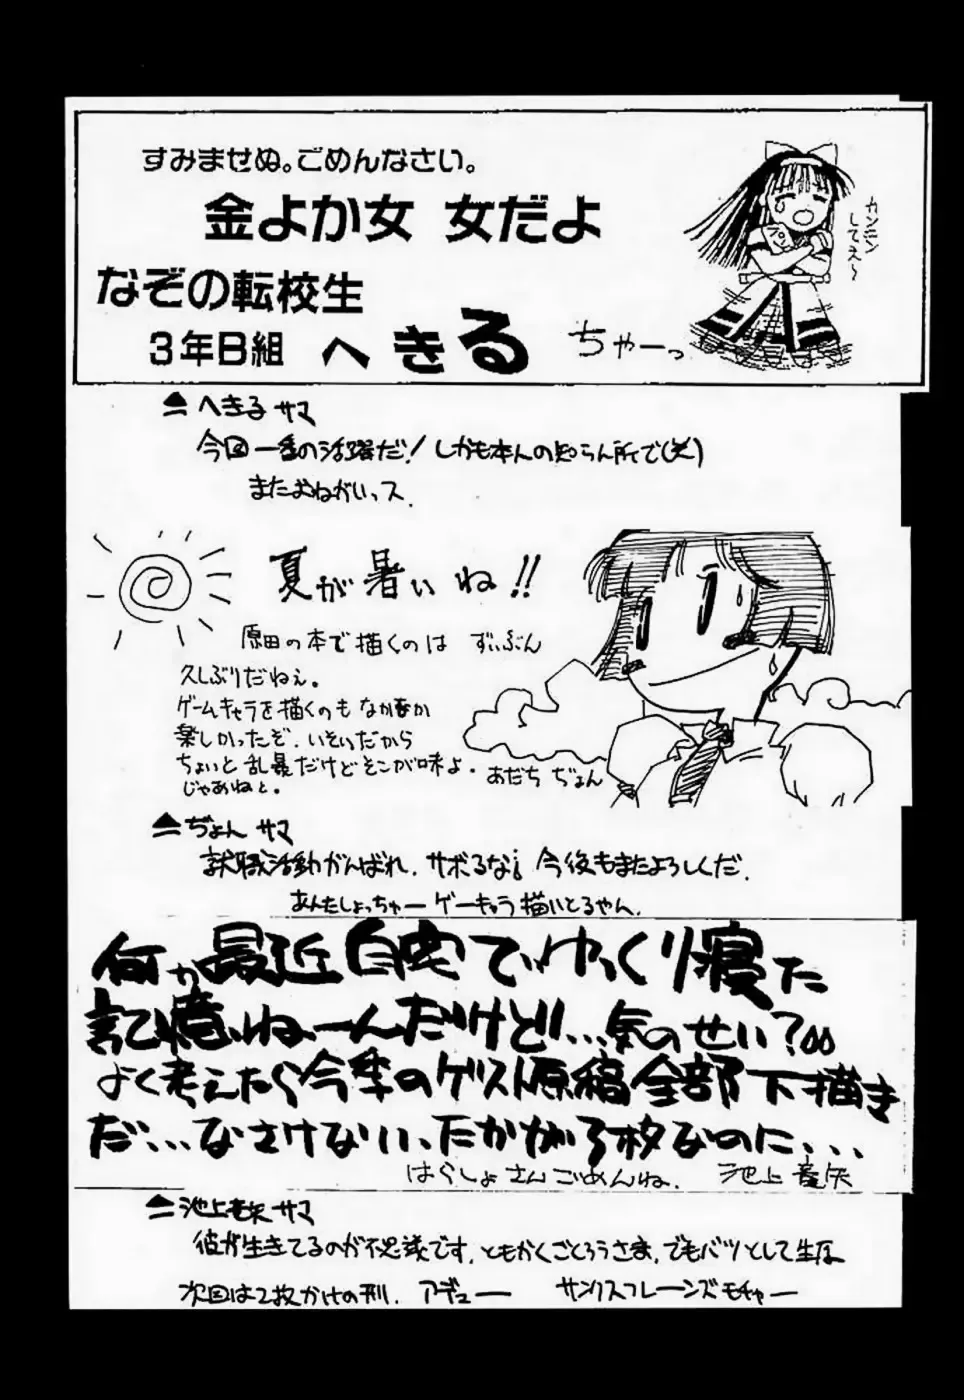 すみませぬ。ごめんなさい。
金よか女 女だよ
なぞの転校生
3年B組 へきる
ちゃーっ
カンニン
してぇ〜
へきるサマ
今回一番の活躍だ!しかも本人の知らん所で(笑)
またおねがいっス.
夏が暑いね!!
原田の本で描くのは ずいぶん
久しぶりだねぇ。
ゲームキャラを描くのもなかなか
楽しかったぞ.いそいだから
ちょいと乱暴だけどそこが味よ.
じゃあねと。
あだち ぢょん
ぢょん サマ
就職活動がんばれ.サボるな! 今後もまたよろしくだ.
あんたしょっちゅーゲーキャラ描いとるやん.
何か最近自宅でゆっくり寝た
記憶ねーんだけど!...気のせい?
よく考えたら今季のゲスト原稿全部下描き
だ...なさけない、たかが3枚なのに...
はらしょさんごめんね. 池上竜矢
池上竜矢サマ
彼が生きてるのが不思議です.ともかくごくろうさま.でもバツとして
次回は2枚かけの刑. アデュー サンクスフレーンズモチャー